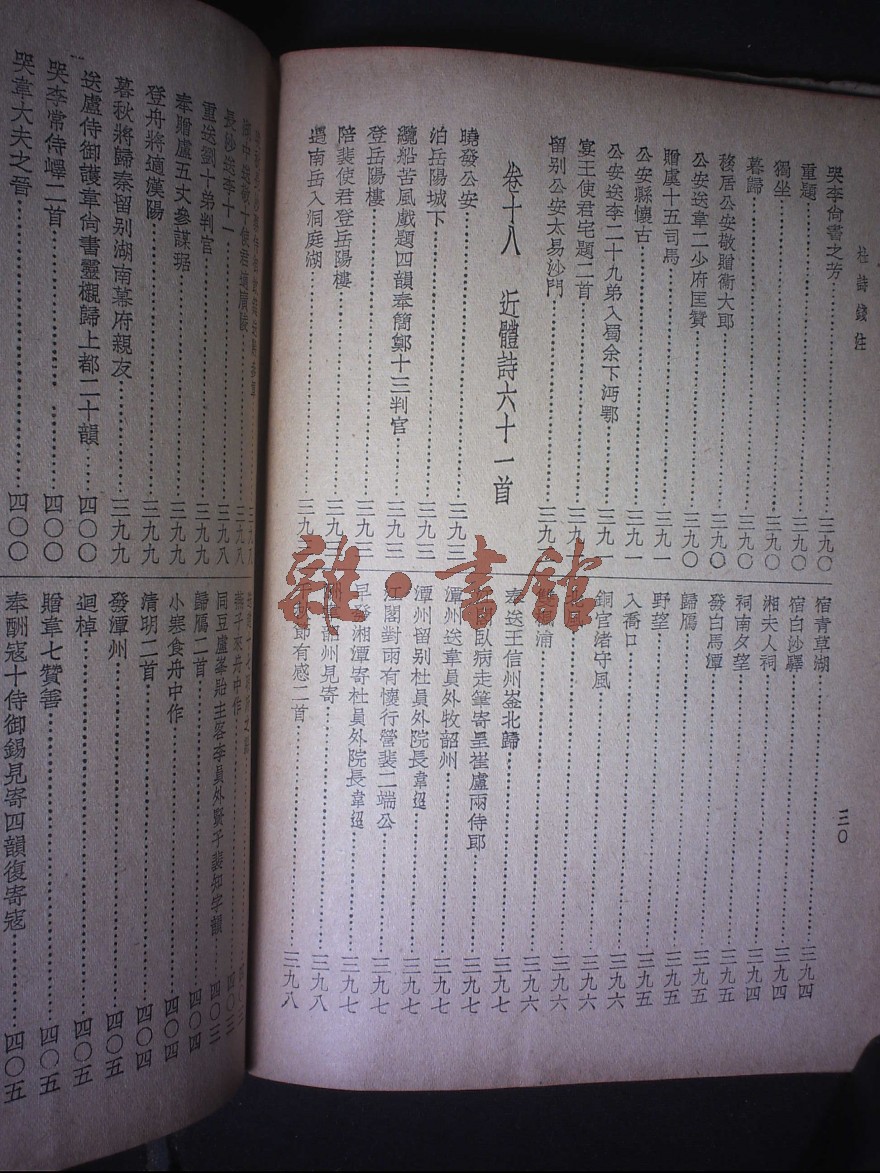 杜詩錢注
三〇
哭李尙書之芳……三九〇
重題……三九〇
獨坐……三九〇
暮歸……三九〇
移居公安敬贈衞大郎……三九〇
公安送韋二少府匡贊……三九〇
贈虞十五司馬……三九一
公安縣懷古……三九一
公安送李二十九弟入蜀余下沔鄂……三九一
宴王使君宅題二首……三九
留別公安太易沙門……三九
卷十八 近體詩六十一首
曉發公安……三九三
泊岳陽城下……三九三
纜船苦風戲題四韻奉簡鄭十三判官……三九三
登岳陽樓……三九三
陪裴使君登岳陽樓……三九三
過南岳入洞庭湖……三九
宿青草湖……三九四
宿白沙驛……三九四
湘夫人祠……三九四
祠南夕望……三九四
發白馬潭……三九五
歸雁……三九五
野望……三九五
入喬口……三九五
銅官渚守風……三九六
……三九六
浦……三九六
奉送王信州崟北歸……三九六
臥病走筆寄呈崔盧兩侍郎……三九七
潭州送韋員外牧韶州……三九七
潭州留別杜員外院長韋迢……三九七
江閣對雨有懷行營裴二端公……三九七
早發湘潭寄杜員外院長韋迢……三九七
韶州見寄……三九八
節有感二首……三九八
長沙送李十一……三九八
重送劉十弟判官……三九九
奉贈盧五丈參謀琚……三九九
登舟將適漢陽……三九九
暮秋將歸秦留別湖南幕府親友……三九九
送盧侍御護韋尙書靈櫬歸上都二十韻……四〇〇
哭李常侍嶧二首……四〇〇
哭韋大夫之晉……四〇〇
同豆盧峯貽主客李員外賢子棐知字韻……四〇三
歸雁二首……四〇四
小寒食舟中作……四〇四
清明二首……四〇四
發潭州……四〇五
迴棹……四〇五
贈韋七贊善……四〇五
奉酬寇十侍御錫見寄四韻復寄寇……四〇五
雜·書館